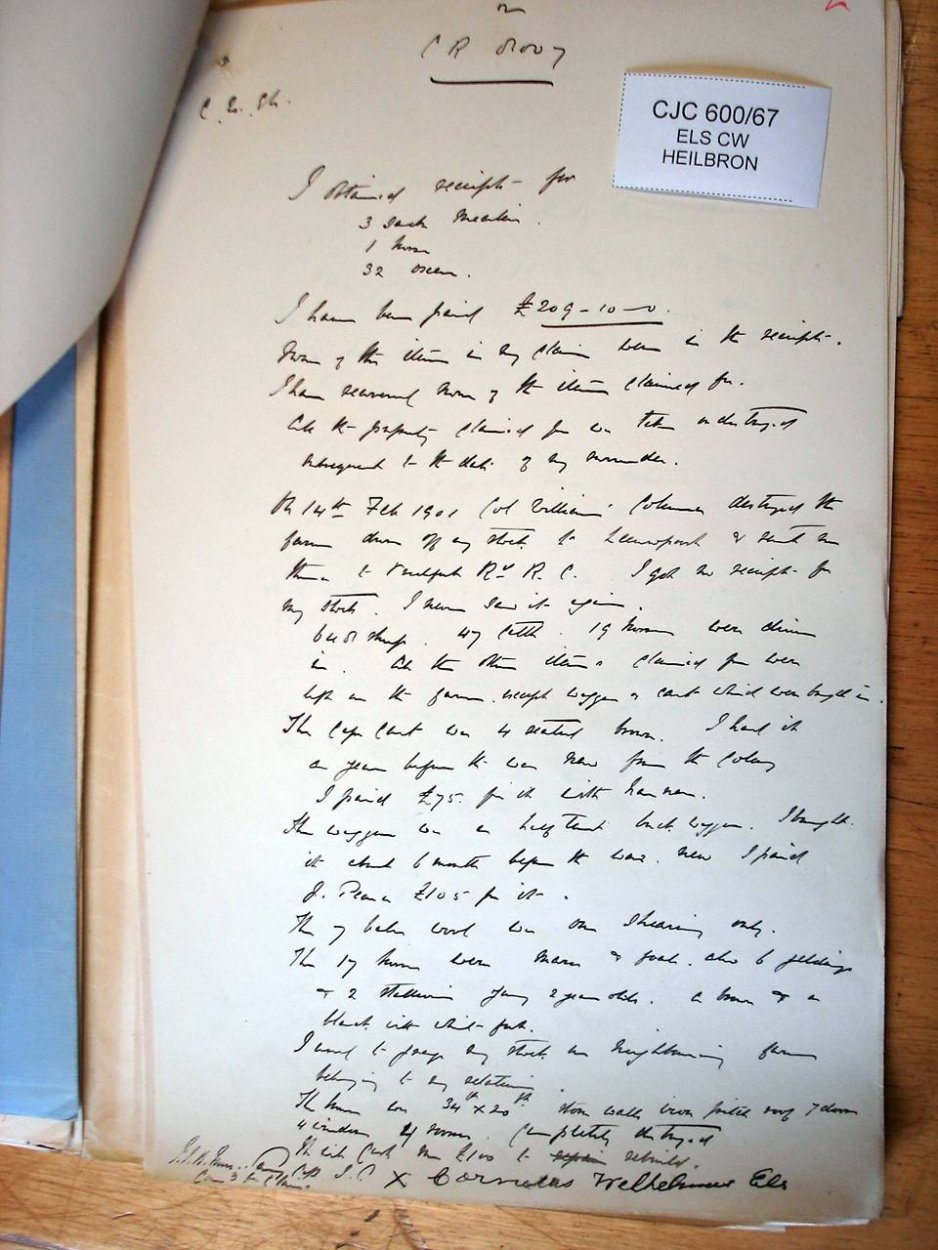 CJC 600/67
ELS CW
HEILBRON
I obtained receipt for
3 sack mealies.
1 horse
32 oxen.
I have been paid £209-10-0.
None of the items in my claim were in the receipt.
I have recovered none of the items claimed for.
All the property claimed for was taken or destroyed
subsequent to the date of my surrender.
On 14th Feb 1901 Col Williams' Column destroyed the
farm drove off my stock to & sent me
then to R.C. I got no receipt for
my stock. I never saw it again.
sheep. 47 cattle. 19 horses were driven
in. All the other items claimed for were
left on the farm except waggon & cart which were brought in.
The Cape Cart was 4 seated brown. I had it
a year before the war new from the Colony
I paid £75 for it with harness.
The waggon was a half tent buck waggon. I bought
it about 6 months before the war. new I paid
J. £105 for it.
The 7 bales wool was one shearing only.
The 17 horses were mares & foals. also 6 geldings
& 2 stallions young 2 year olds. a brown & a
black with white foot.
I used to graze my stock on neighbouring farms
belonging to my relations.
The house was 34 x 20 stone walls iron roof 7 doors
4 windows 4 rooms. Completely destroyed
It will cost me £100 to repair rebuild.
X Cornelius Welhelmus Els